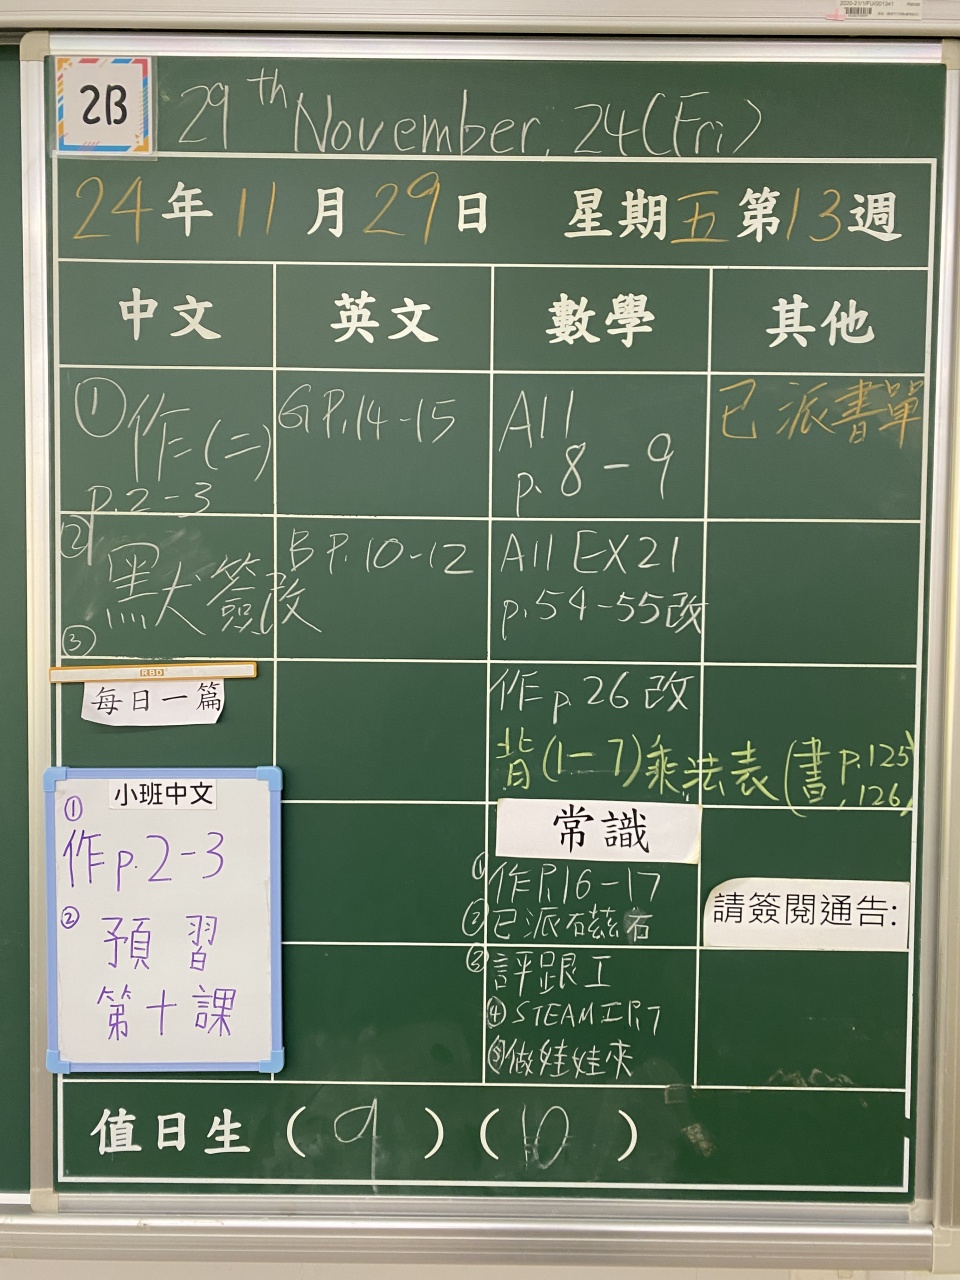 2B
29th November, 24(Fri)
24年11月29日 星期五第13週
中文
英文
數學
其他
①作(二)
p.2-3
②
默犬簽改
③
每日一篇
小班中文
①
作p.2-3
②
預習
第十課
GP.14-15
BP.10-12
A11
p.8-9
A11 EX21
p.54-55改
作p.26改
背(1-7)乘法表(書p.125
,126)
常識
①作P.16-17
②已派磁石
③評跟工
④STEAM工P.7
⑤做娃娃夾
已派書單
請簽閱通告:
值日生(9)(10)